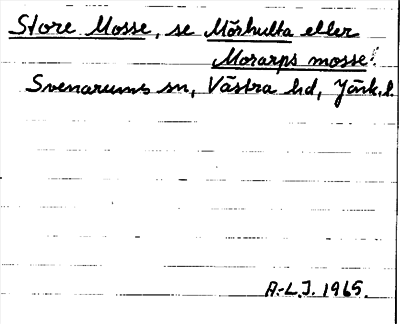 Store Mosse, se Mörhulta eller
Morarps mosse!
Svenarums sn, Västra hd, Jönk.l.
A.-L.J. 1965.